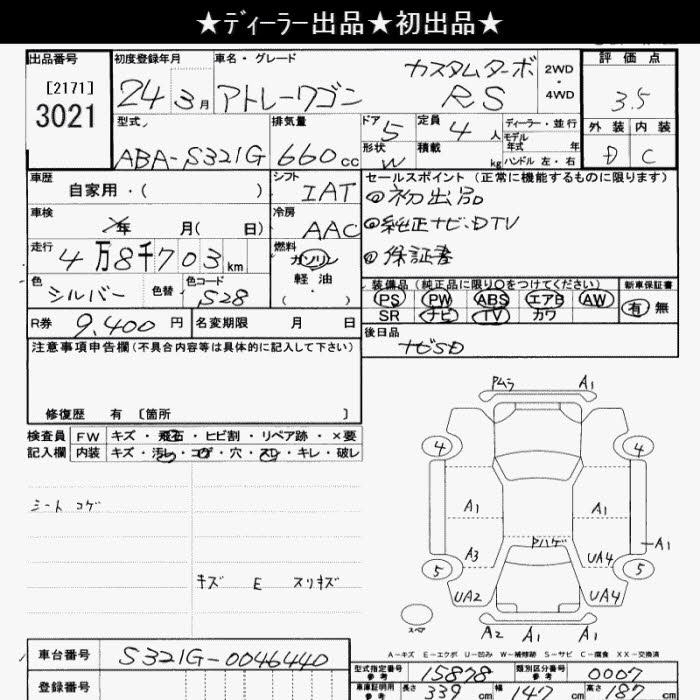 ★ディーラー出品★初出品★
出品番号 初度登録年月 車名・グレード 評価点
[2171]
3021
24 3月 アトレーワゴン カスタムターボ RS
2WD
・
4WD
3.5
型式 排気量 ドア 定員 ディーラー・並行 外装 内装
ABA-S321G 660cc 5 4人 モデル年式 年 D C
形状 W 積載 kg ハンドル 左・右
車歴 自家用・( ) シフト IAT セールスポイント (正常に機能するものに限ります)
①初出品
車検 年 月( 日) 冷房 AAC ②純正ナビ・DTV
走行 4万8千703km 燃料 ガソリン ③保証書
軽油
( ・ )
色 シルバー 色替 色コード S28
装備品 (純正品に限り○をつけてください) 新車保証書
PS PW ABS エアB AW 有 無
SR ナビ TV カワ
R券 9,400円 名変期限 月 日
後日品
ナビSD
注意事項申告欄(不具合内容等は具体的に記入して下さい)
修復歴 有 [箇所 ]
検査員 FW キズ・飛石・ヒビ割・リペア跡・×要
記入欄 内装 キズ・汚れ・コゲ・穴・スレ・キレ・破レ
シート コゲ
キズ E スリキズ
Pムラ A1
4 4
A1 A1
A1
Pハゲ
A3 UA4
5 5
UA2 UA4
A2 A1 A1
スペア
A-キズ E-エクボ U-凹み W-補修跡 S-サビ C-腐食 XX-交換済
車台番号 S321G-0046440
型式指定番号 参考 15878 類別区分番号 参考 0007
登録番号
車庫証明用 参考 長さ 339cm 幅 147cm 高さ 187cm